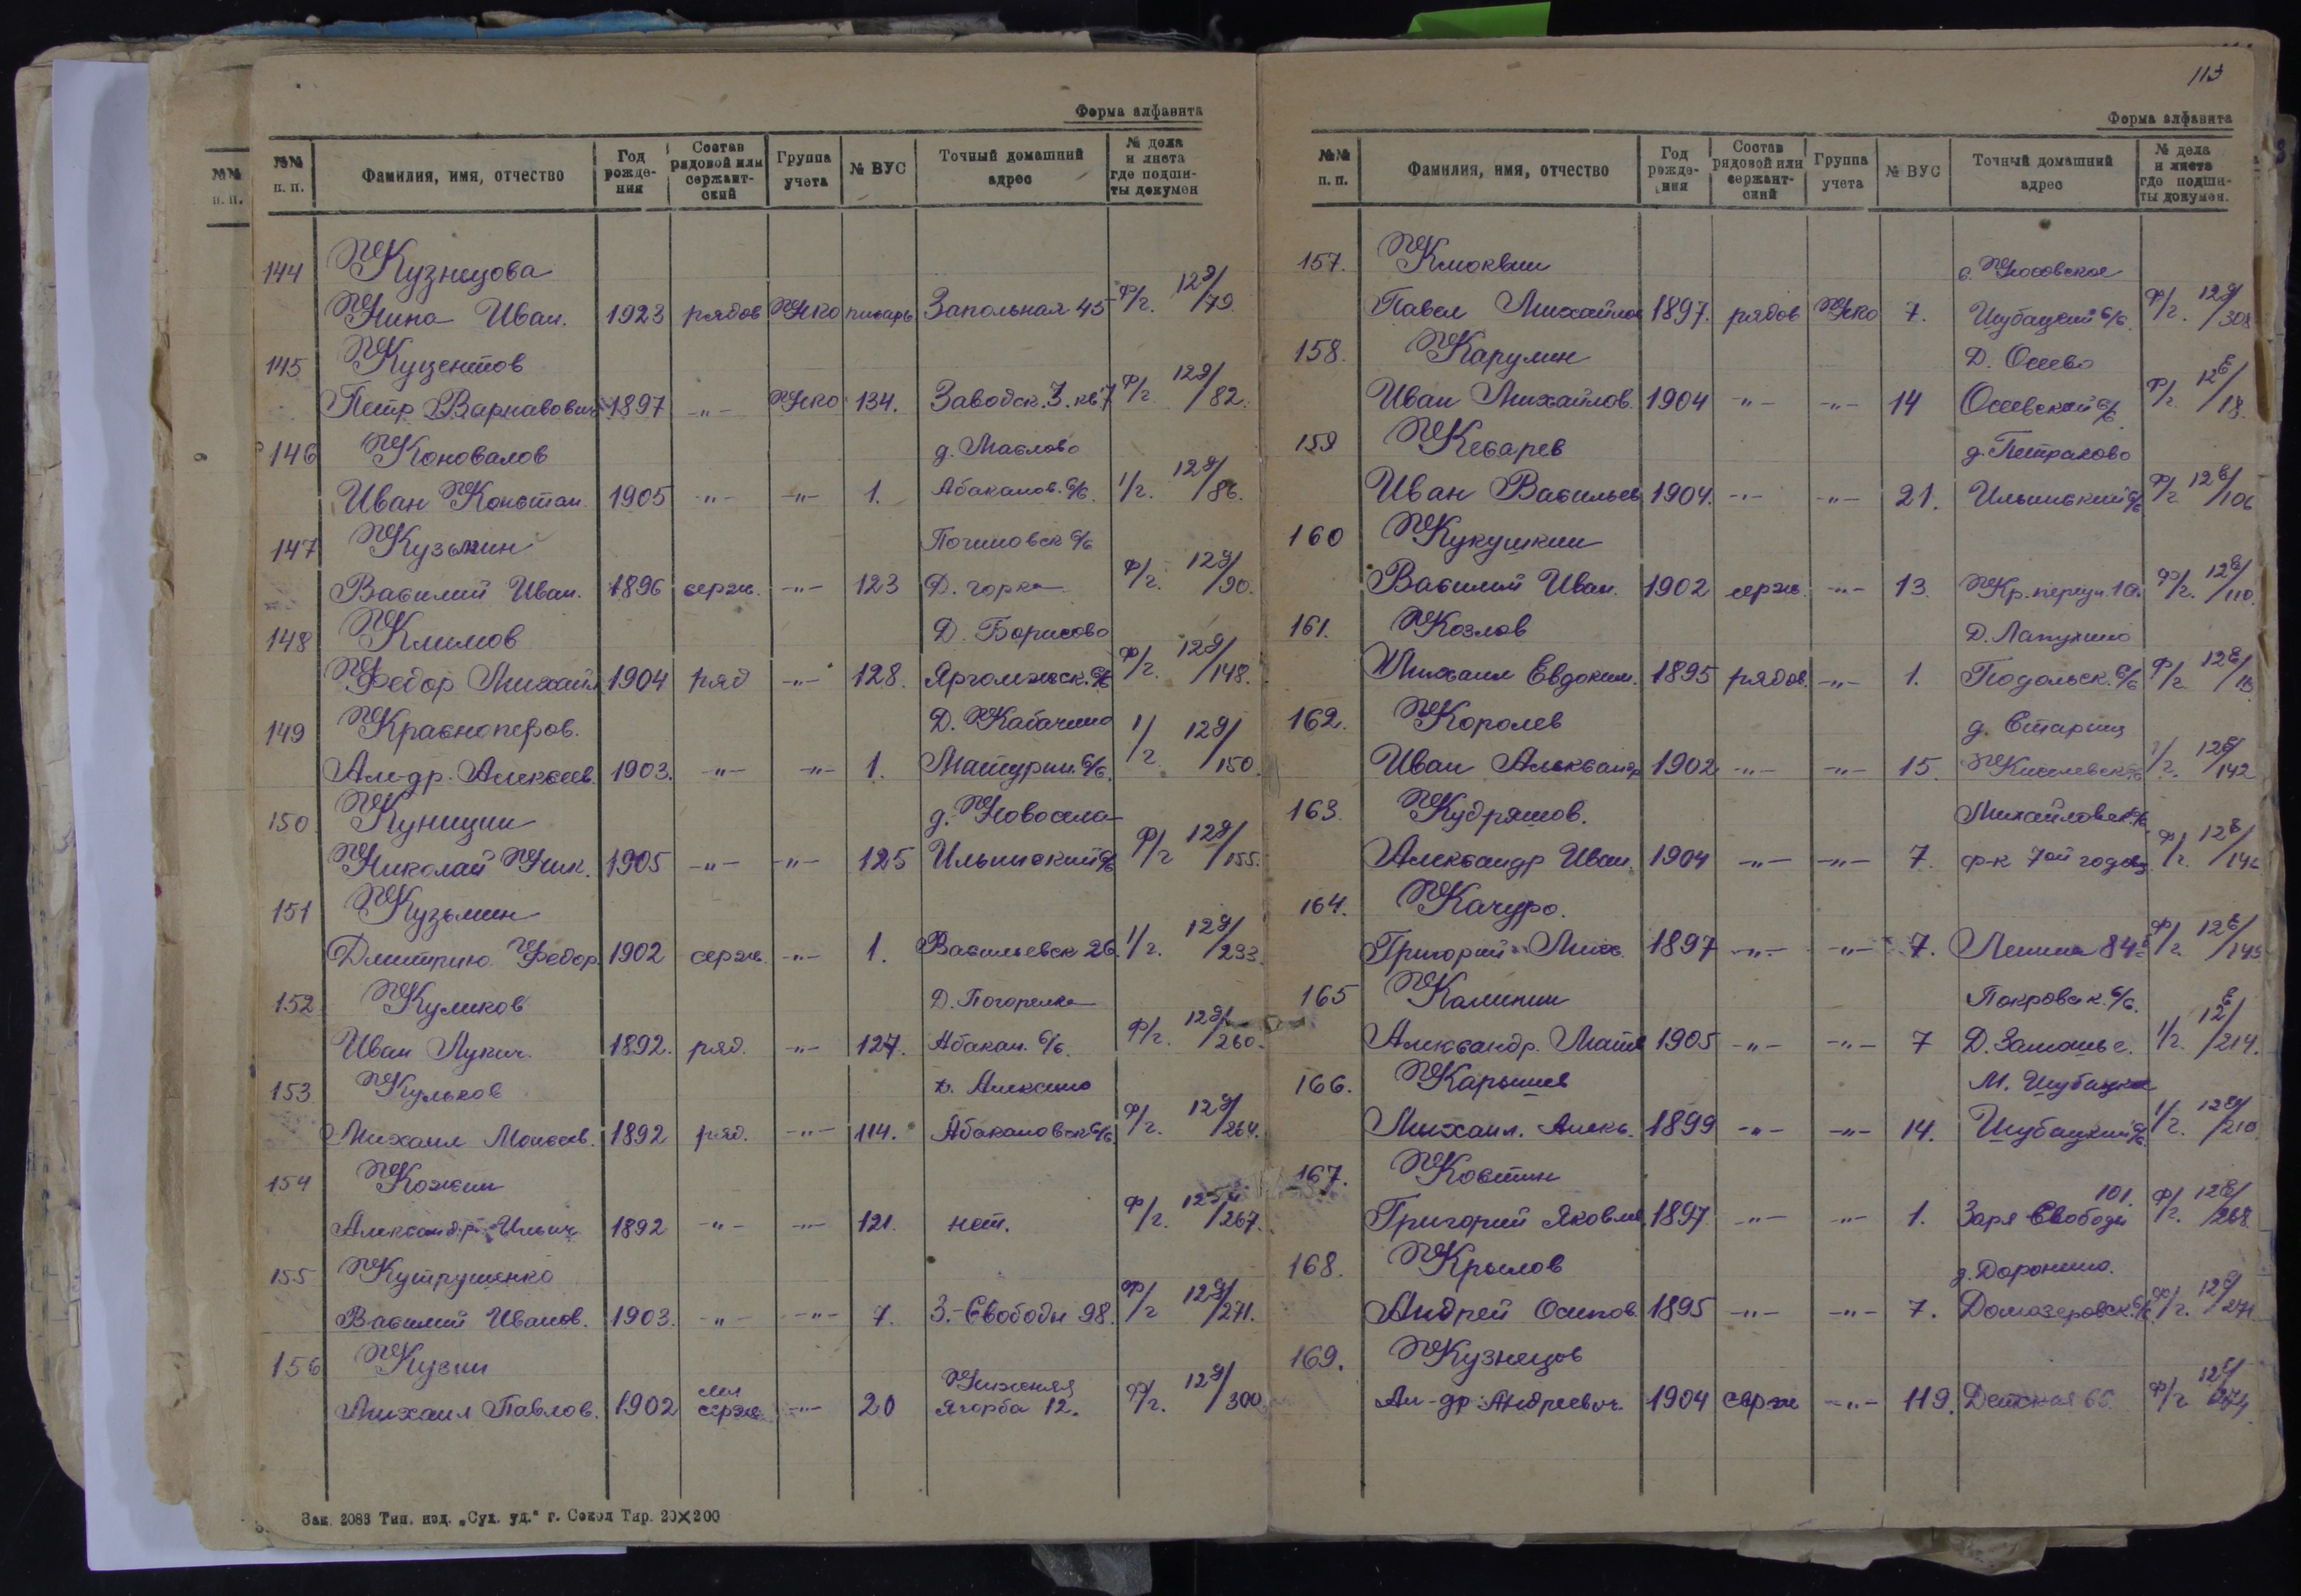 Форма алфавита
№№ п. п. | Фамилия, имя, отчество | Год рождения | Состав рядовой или сержантский | Группа учета | № ВУС | Точный домашний адрес | № дела и листа где подшиты докумен
144 Кузнецова
Нина Иван. 1923 рядов НКО писарь Запольная 45 Ф/г. 12д/79.
145 Куцентов
Петр Варнавович 1897 -"- НКО 134. Заводск. 3. кв 7 Ф/г. 12д/82.
146 Коновалов д. Маслово
Иван Констан. 1905 -"- -"- 1. Абаканов. с/с. 1/г. 12д/86.
147 Кузьмин Починовск с/с
Василий Иван. 1896 серж. -"- 123 Д. Горка Ф/г. 12д/90.
148 Климов Д. Борисово
Федор Михайл 1904 ряд -"- 128. Яргомжск. с/с Ф/г. 12д/148.
149 Красноперов. Д. Кабачино
Ал-др. Алексеев. 1903. -"- -"- 1. Матурин. с/с. 1/г. 12д/150.
150 Куницин д. Новосела
Николай Ник. 1905 -"- -"- 125 Ильинский с/с Ф/г 12д/155.
151 Кузьмин
Дмитрию Федор. 1902 серж. -"- 1. Васильевск 26. 1/г. 12д/233.
152 Куликов Д. Погорелка
Иван Лукич. 1892. ряд. -"- 127. Абакан. с/с. Ф/г. 12д/260.
153 Кульков д. Алексино
Михаил Моисеев. 1892 ряд. -"- 114. Абакановск с/с Ф/г. 12д/264.
154 Кожин
Александр Ильич 1892 -"- -"- 121. нет. Ф/г. 12д/267.
155 Кутрушенко
Василий Иванов. 1903. -"- -"- 7. З.-Свободы 98. Ф/г 12д/271.
156 Кузин Нижняя
Михаил Павлов. 1902 мл серж -"- 20 Ягорба 12. Ф/г. 12д/300
Зак. 2083 Тип. изд. „Сух. уд.“ г. Сокол Тир. 20×200
113
Форма алфавита
№№ п. п. | Фамилия, имя, отчество | Год рождения | Состав рядовой или сержантский | Группа учета | № ВУС | Точный домашний адрес | № дела и листа где подшиты докумен.
157. Клюквин с. Носовское
Павел Михайлов 1897. рядов НКО 7. Шубацкий с/с. Ф/г. 12д/308
158. Карулин Д. Осеево
Иван Михайлов. 1904 -"- -"- 14 Осеевский с/с. Ф/г. 12е/18.
159 Кесарев д. Петраково
Иван Васильев 1904. -"- -"- 21. Ильинский с/с Ф/г. 12е/106
160 Кукушкин
Василий Иван. 1902 серж. -"- 13. Кр. переул. 10. Ф/г. 12е/110.
161. Козлов Д. Лапухино
Михаил Евдоким. 1895 рядов. -"- 1. Подольск. с/с Ф/г.
162. Королев д. Стариц
Иван Александр 1902 -"- -"- 15. Киселевск с/с 1/г. 12е/142
163. Кудряшов. Михайловск с/с.
Александр Иван. 1904 -"- -"- 7. ф-к 7ой годовщ Ф/г.
164. Качуро.
Григорий Мих. 1897 -"- -"- 7. Ленина 84 Ф/г. 12е/145
165 Калинин Покровск. с/с.
Александр. Матв 1905 -"- -"- 7 Д. Замошье. 1/г. 12е/214.
166. Карышев М. Шубацкое
Михаил. Алекс. 1899 -"- -"- 14. Шубацкий с/с. 1/г. 12е/210.
167. Костин 101.
Григорий Яковлев. 1897. -"- -"- 1. Заря Свободы Ф/г. 12е/268
168. Крылов д. Доронино.
Андрей Осипов. 1895 -"- -"- 7. Домозеровск. с/с Ф/г. 12е/271
169. Кузнецов
Ал-др Андреевич. 1904 серж -"- 119. Детская Ф/г 12е/274